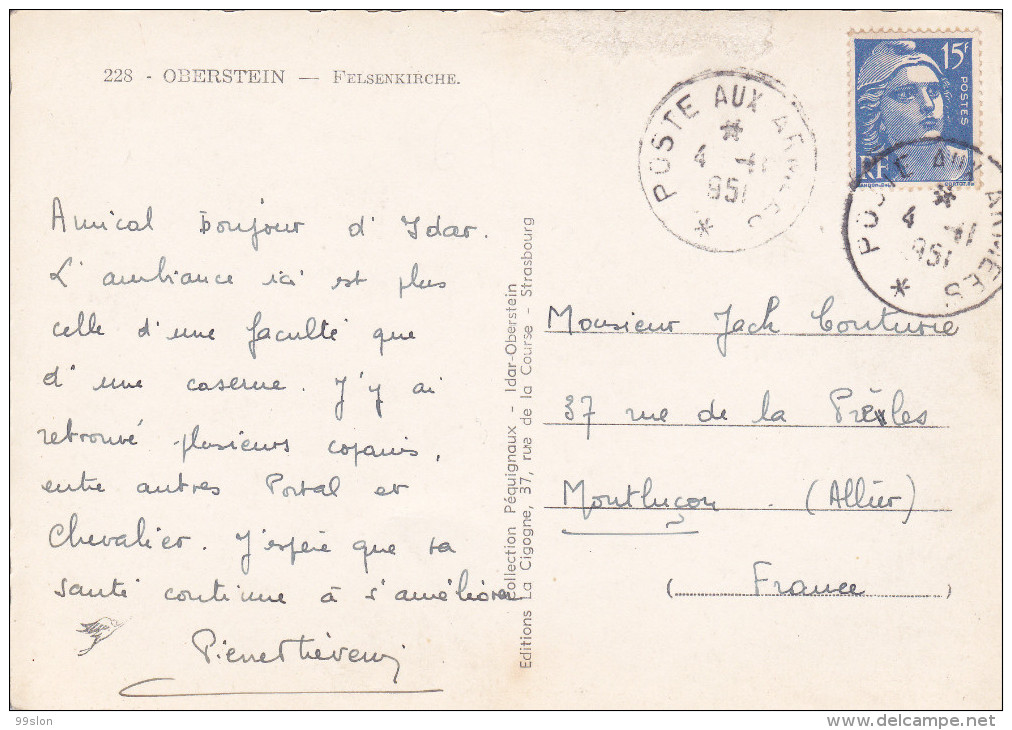 228 - OBERSTEIN — FELSENKIRCHE.
Amical Bonjour d'Idar.
L'ambiance ici est plus
celle d'une faculté que
d'une caserne. J'y ai
retrouvé plusieurs copains,
entre autres Portal et
Chevalier. J'espère que ta
santé continue à s'améliorer
Editions La Cigogne, 37, rue de la Course - Strasbourg
Collection Péquignaux - Idar-Oberstein
15F
POSTES
RF
POSTE AUX ARMEES
4 -11
951
POSTE AUX ARMEES
4 -11
951
Monsieur Jack Couturie
37 rue de la
Montluçon. (Allier)
(France)
99slon
delcampe.net